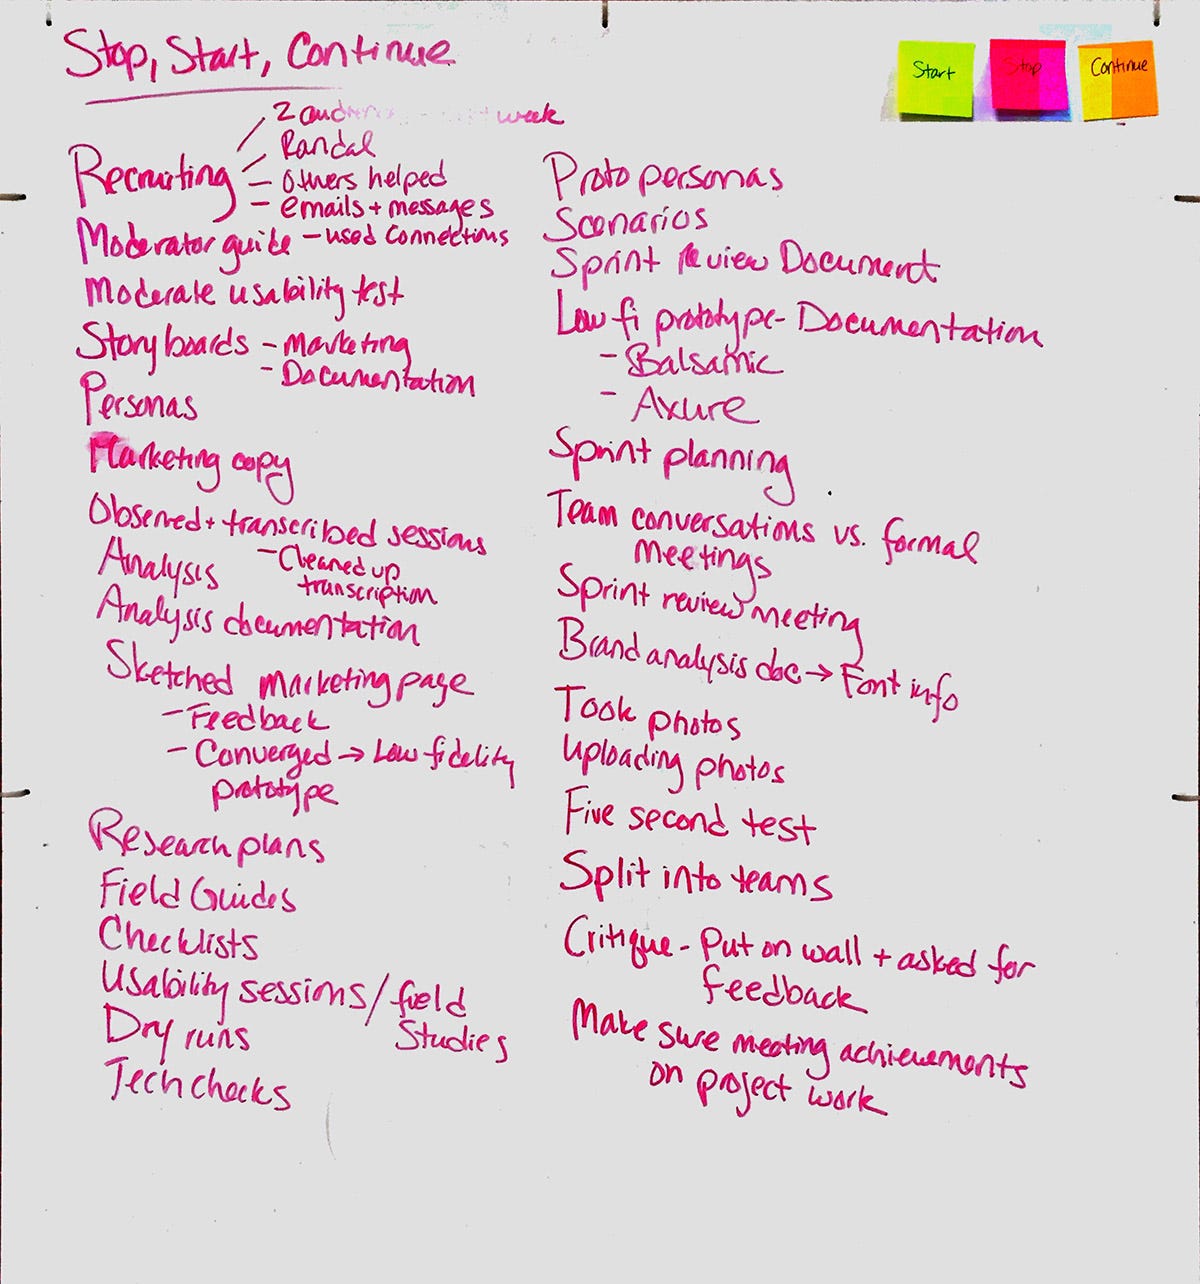 Stop, Start, Continue
Start
Stop
Continue
2 week
Randal
Recruiting
- others helped
- emails + messages
Moderator guide - used connections
Moderate usability test
Storyboards - Marketing
- Documentation
Personas
Marketing copy
Observed + transcribed sessions
- Cleaned up
transcription
Analysis
Analysis documentation
Sketched marketing page
- Feedback
- Converged → Low fidelity
prototype
Research plans
Field Guides
Checklists
Usability sessions/field
Studies
Dry runs
Tech checks
Proto personas
Scenarios
Sprint Review Document
Low fi prototype - Documentation
- Balsamic
- Axure
Sprint planning
Team conversations vs. formal
meetings
Sprint review meeting
Brand analysis doc → Font info
Took photos
Uploading photos
Five second test
Split into teams
Critique - Put on wall + asked for
feedback
Make sure meeting achievements
on project work